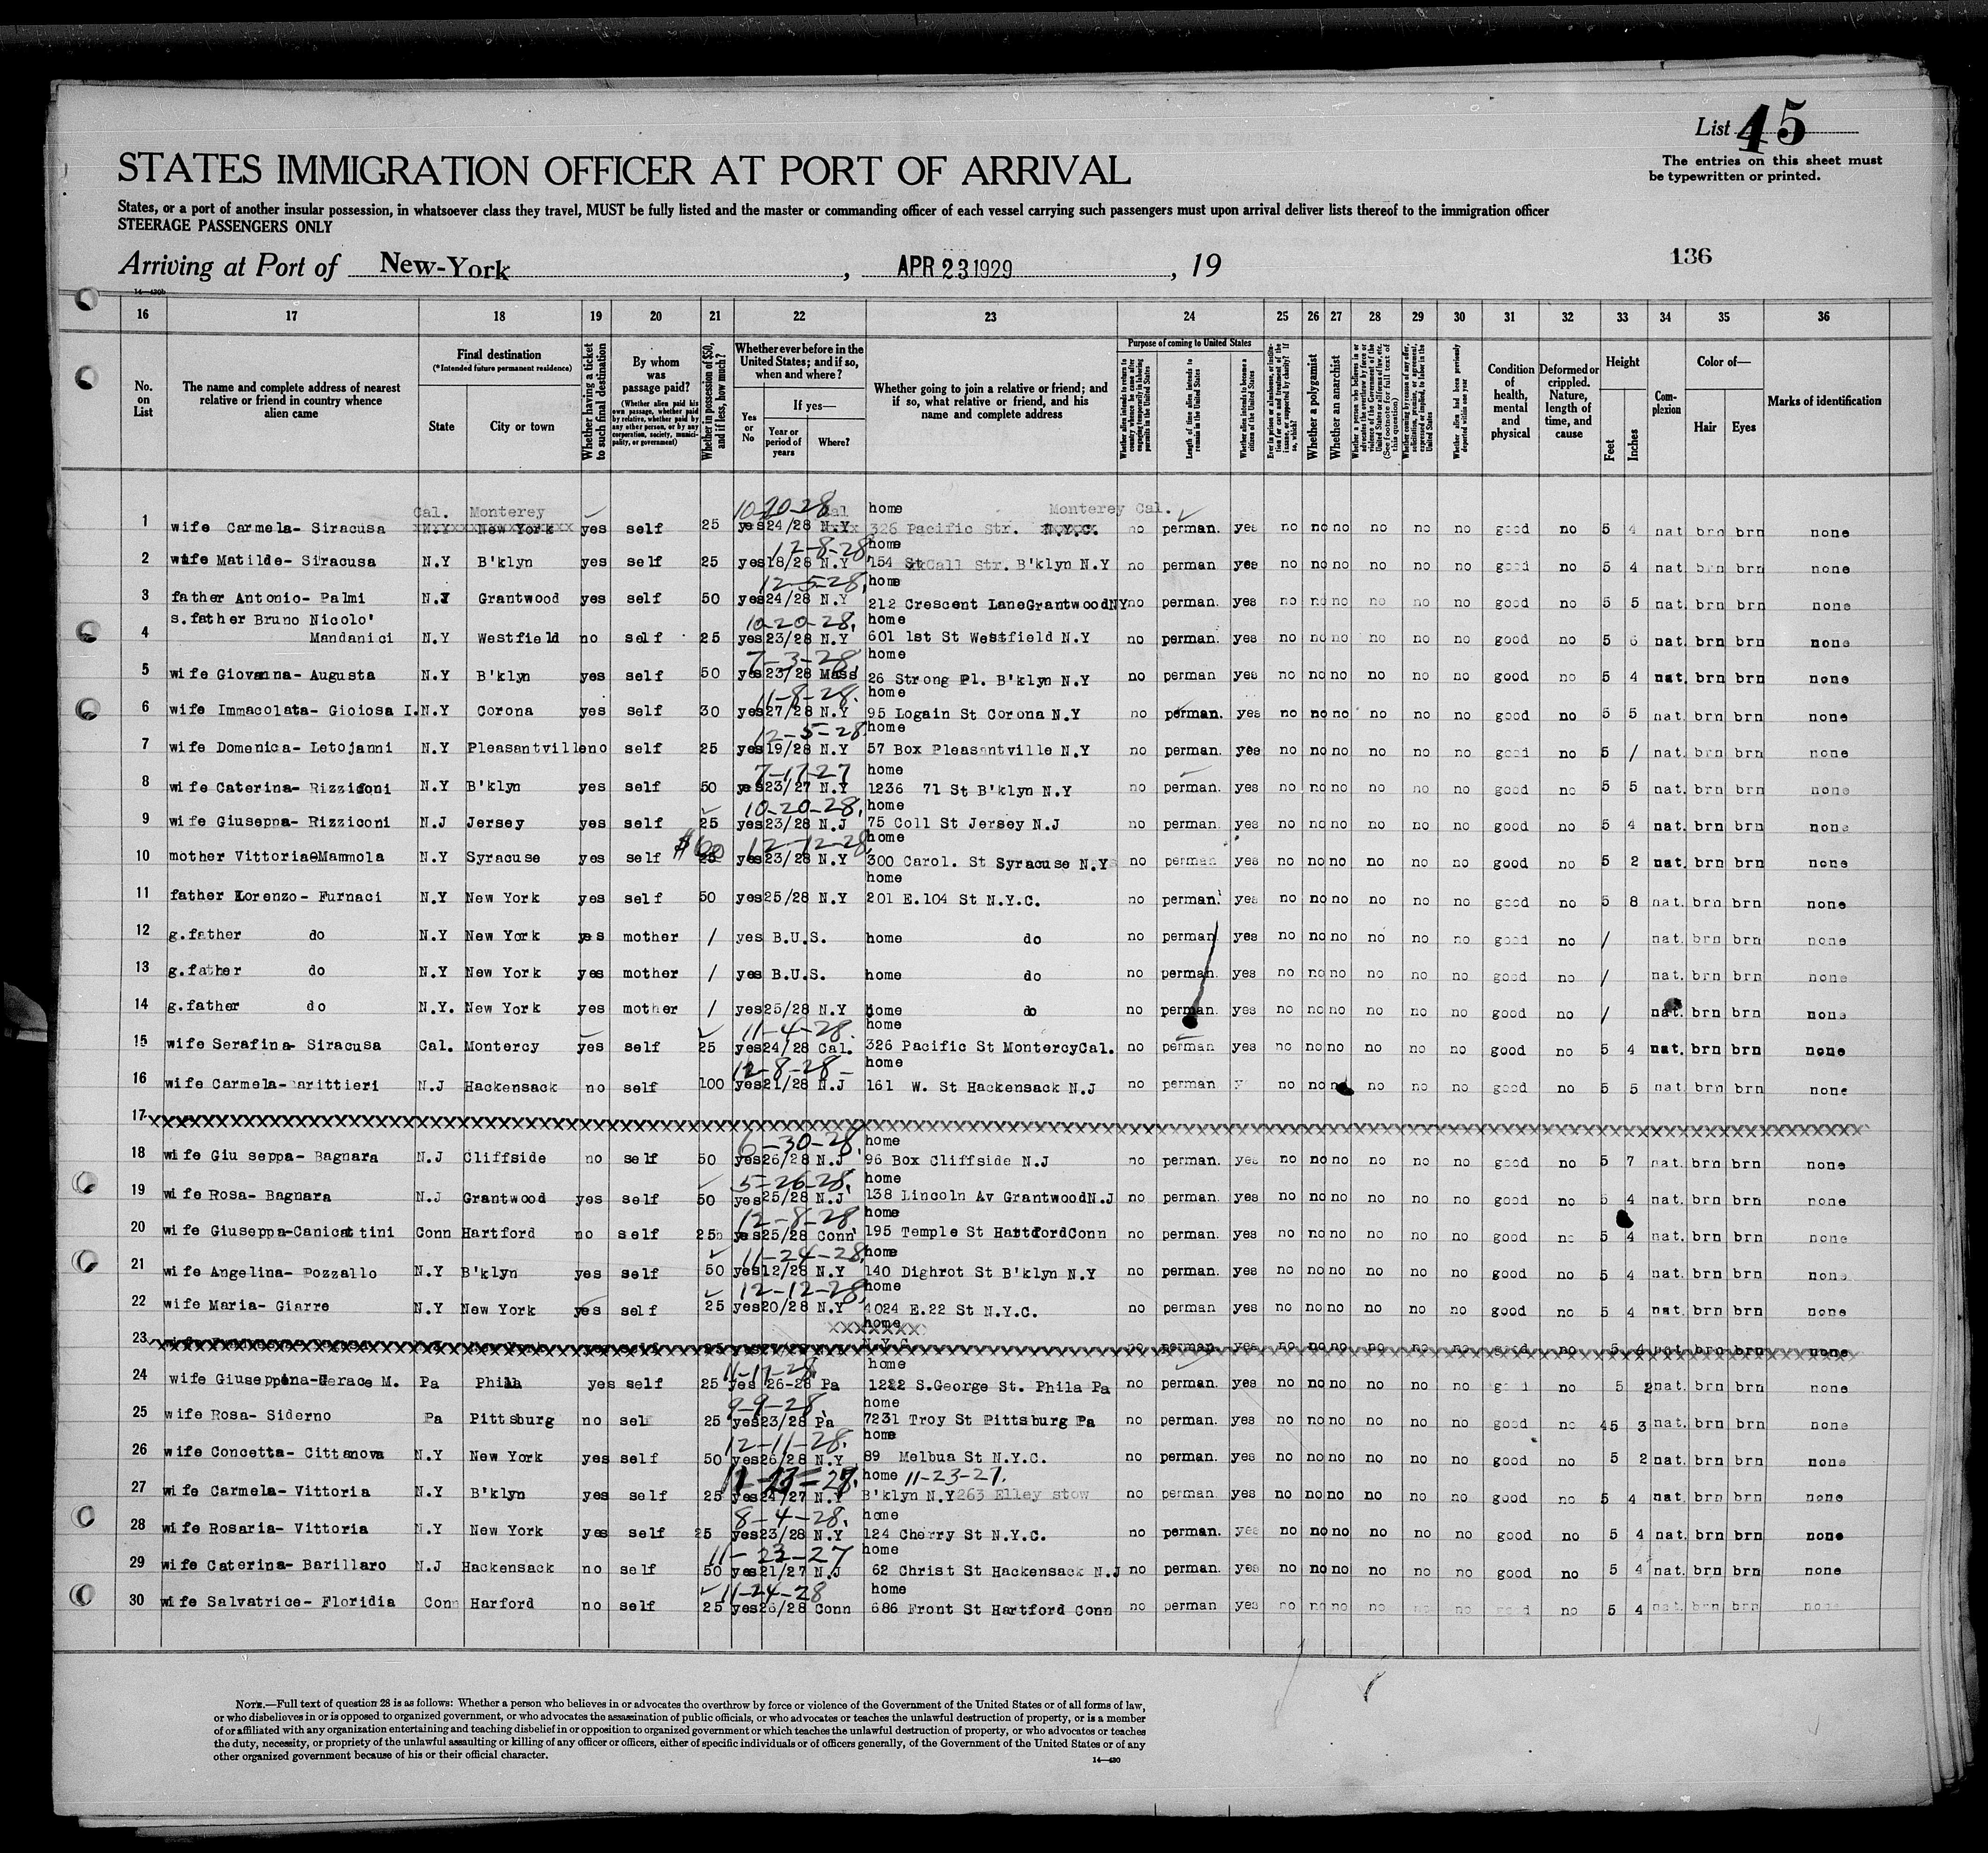 List 45
The entries on this sheet must
be typewritten or printed.
STATES IMMIGRATION OFFICER AT PORT OF ARRIVAL
States, or a port of another insular possession, in whatsoever class they travel, MUST be fully listed and the master or commanding officer of each vessel carrying such passengers must upon arrival deliver lists thereof to the immigration officer
STEERAGE PASSENGERS ONLY
136
Arriving at Port of New-York, APR 23 1929, 19
14—430b
16 17 18 19 20 21 22 23 24 25 26 27 28 29 30 31 32 33 34 35 36
No. on List
The name and complete address of nearest relative or friend in country whence alien came
Final destination
(*Intended future permanent residence)
State
City or town
Whether having a ticket to such final destination
By whom was passage paid?
(Whether alien paid his own passage, whether paid by relative, whether paid by any other person, or by any corporation, society, municipality, or government)
Whether in possession of $50, and if less, how much?
Whether ever before in the United States; and if so, when and where?
Yes or No
If yes—
Year or period of years
Where?
Whether going to join a relative or friend; and if so, what relative or friend, and his name and complete address
Purpose of coming to United States
Length of time alien intends to remain in the United States
Whether alien intends to become a citizen of the United States
Whether a polygamist
Whether an anarchist
Whether alien had been previously deported within one year
Condition of health, mental and physical
Deformed or crippled. Nature, length of time, and cause
Height
Feet
Inches
Complexion
Color of—
Hair
Eyes
Marks of identification
Cal. Monterey 10-20-28 Cal home Monterey Cal.
1 wife Carmela- Siracusa N.Y New York yes self 25 yes 24/28 N.Y 326 Pacific Str. N.Y.C. no perman. yes no no no no no no good no 5 4 nat brn brn none
12-8-28 home
2 wife Matilde- Siracusa N.Y B'klyn yes self 25 yes 18/28 N.Y 154 St Call Str. B'klyn N.Y no perman yes no no no no no no good no 5 4 nat. brn brn none
12-5-28, home
3 father Antonio- Palmi N.Y Grantwood yes self 50 yes 24/28 N.Y 212 Crescent LaneGrantwoodNY no perman. yes no no no no no no good no 5 5 nat. brn brn none
s.father Bruno Nicolo' 10-20-28, home
4 Mandanici N.Y Westfield no self 25 yes 23/28 N.Y 601 1st St Westfield N.Y no perman. yes no no no no no no good no 5 6 nat. brn brn none
7-3-28 home
5 wife Giovanna- Augusta N.Y B'klyn yes self 50 yes 23/28 Mass 26 Strong Pl. B'klyn N.Y no perman yes no no no no no no good no 5 4 nat. brn brn none
11-8-28. home
6 wife Immacolata- Gioiosa I. N.Y Corona yes self 30 yes 27/28 N.Y 95 Logain St Corona N.Y no perman. yes no no no no no no good no 5 5 nat. brn brn none
12-5-28 home
7 wife Domenica- Letojanni N.Y Pleasantville no self 25 yes 19/28 N.Y 57 Box Pleasantville N.Y no perman. yes no no no no no no good no 5 / nat. brn brn none
7-17-27 home
8 wife Caterina- Rizziconi N.Y B'klyn yes self 50 yes 23/27 N.Y 1236 71 St B'klyn N.Y no perman. yes no no no no no no good no 5 5 nat. brn brn none
10-20-28, home
9 wife Giuseppa- Rizziconi N.J Jersey yes self 25 yes 23/28 N.J 75 Coll St Jersey N.J no perman. yes no no no no no no good no 5 4 nat. brn brn none
$60 12-12-28, home
10 mother Vittoria Mammola N.Y Syracuse yes self 25 yes 23/28 N.Y 300 Carol. St Syracuse N.Y no perman yes no no no no no no good no 5 2 nat. brn brn none
home
11 father Lorenzo- Furnaci N.Y New York yes self 50 yes 25/28 N.Y 201 E.104 St N.Y.C. no perman. yes no no no no no no good no 5 8 nat. brn brn none
12 g.father do N.Y New York yes mother / yes B.U.S. home do no perman yes no no no no no no good no / nat. brn brn none
13 g.father do N.Y New York yes mother / yes B.U.S. home do no perman. yes no no no no no no good no / nat. brn brn none
14 g.father do N.Y. New York yes mother / yes 25/28 N.Y home do no perman. yes no no no no no no good no / nat. brn brn none
11-4-28. home
15 wife Serafina- Siracusa Cal. Monterey yes self 25 yes 24/28 Cal. 326 Pacific St MontereyCal. no perman yes no no no no no no good no 5 4 nat. brn brn none
12-8-28 home
16 wife Carmela- N.J Hackensack no self 100 yes 21/28 N.J 161 W. St Hackensack N.J no perman no no no no no no good no 5 5 nat brn brn none
17
6-30-28, home
18 wife Giu seppa- Bagnara N.J Cliffside no self 50 yes 26/28 N.J 96 Box Cliffside N.J no perman. yes no no no no no no good no 5 7 nat. brn brn none
5-26-28, home
19 wife Rosa- Bagnara N.J Grantwood yes self 50 yes 25/28 N.J 138 Lincoln Av GrantwoodN.J no perman. yes no no no no no no good no 5 4 nat. brn brn none
12-8-28 home
20 wife Giuseppa-Canicattini Conn Hartford no self 25 yes 25/28 Conn 195 Temple St HartfordConn no perman. yes no no no no no no good no 5 4 nat. brn brn none
11-24-28, home
21 wife Angelina- Pozzallo N.Y B'klyn yes self 50 yes 12/28 N.Y 140 Dighrot St B'klyn N.Y no perman. yes no no no no no no good no 5 4 nat. brn brn none
12-12-28, home
22 wife Maria- Giarre N.Y New York yes self 25 yes 20/28 N.Y 4024 E.22 St N.Y.C. no perman yes no no no no no no good no 5 4 nat. brn brn none
home
23 New York N.Y.C no perman. yes no no no no no no good no 5 4 nat brn brn none
11-17-28, home
24 wife Giuseppina-Gerace M. Pa Phila yes self 25 yes 26-28 Pa 1222 S.George St. Phila Pa no perman. yes no no no no no no no 5 2 nat. brn brn none
9-9-28, home
25 wife Rosa- Siderno Pa Pittsburg no self 25 yes 23/28 Pa 7231 Troy St Pittsburg Pa no perman. yes no no no no no no good no 45 3 nat. brn brn none
12-11-28. home
26 wife Concetta- Cittanova N.Y New York yes self 50 yes 26/28 N.Y 89 Melbua St N.Y.C. no perman. yes no no no no no no good no 5 2 nat. brn brn none
home 11-23-27.
27 wife Carmela- Vittoria N.Y B'klyn yes self 25 yes 24/27 N.Y B'klyn N.Y 263 Elley stow no perman. yes no no no no no no good no 5 4 nat brn brn none
8-4-28, home
28 wife Rosaria- Vittoria N.Y New York yes self 25 yes 23/28 N.Y 124 Cherry St N.Y.C. no perman. yes no no no no no no good no 5 4 nat. brn brn none
11-23-27 home
29 wife Caterina- Barillaro N.J Hackensack no self 50 yes 21/27 N.J 62 Christ St Hackensack N.J no perman. yes no no no no no no good no 5 4 nat. brn brn none
11-24-28 home
30 wife Salvatrice- Floridia Conn Harford no self 25 yes 26/28 Conn 686 Front St Hartford Conn no perman yes no no no no no no no 5 4 nat. brn brn none
NOTE.—Full text of question 28 is as follows: Whether a person who believes in or advocates the overthrow by force or violence of the Government of the United States or of all forms of law,
or who disbelieves in or is opposed to organized government, or who advocates the assassination of public officials, or who advocates or teaches the unlawful destruction of property, or is a member
of or affiliated with any organization entertaining and teaching disbelief in or opposition to organized government or which teaches the unlawful destruction of property, or who advocates or teaches
the duty, necessity, or propriety of the unlawful assaulting or killing of any officer or officers, either of specific individuals or of officers generally, of the Government of the United States or of any
other organized government because of his or their official character.
14—430